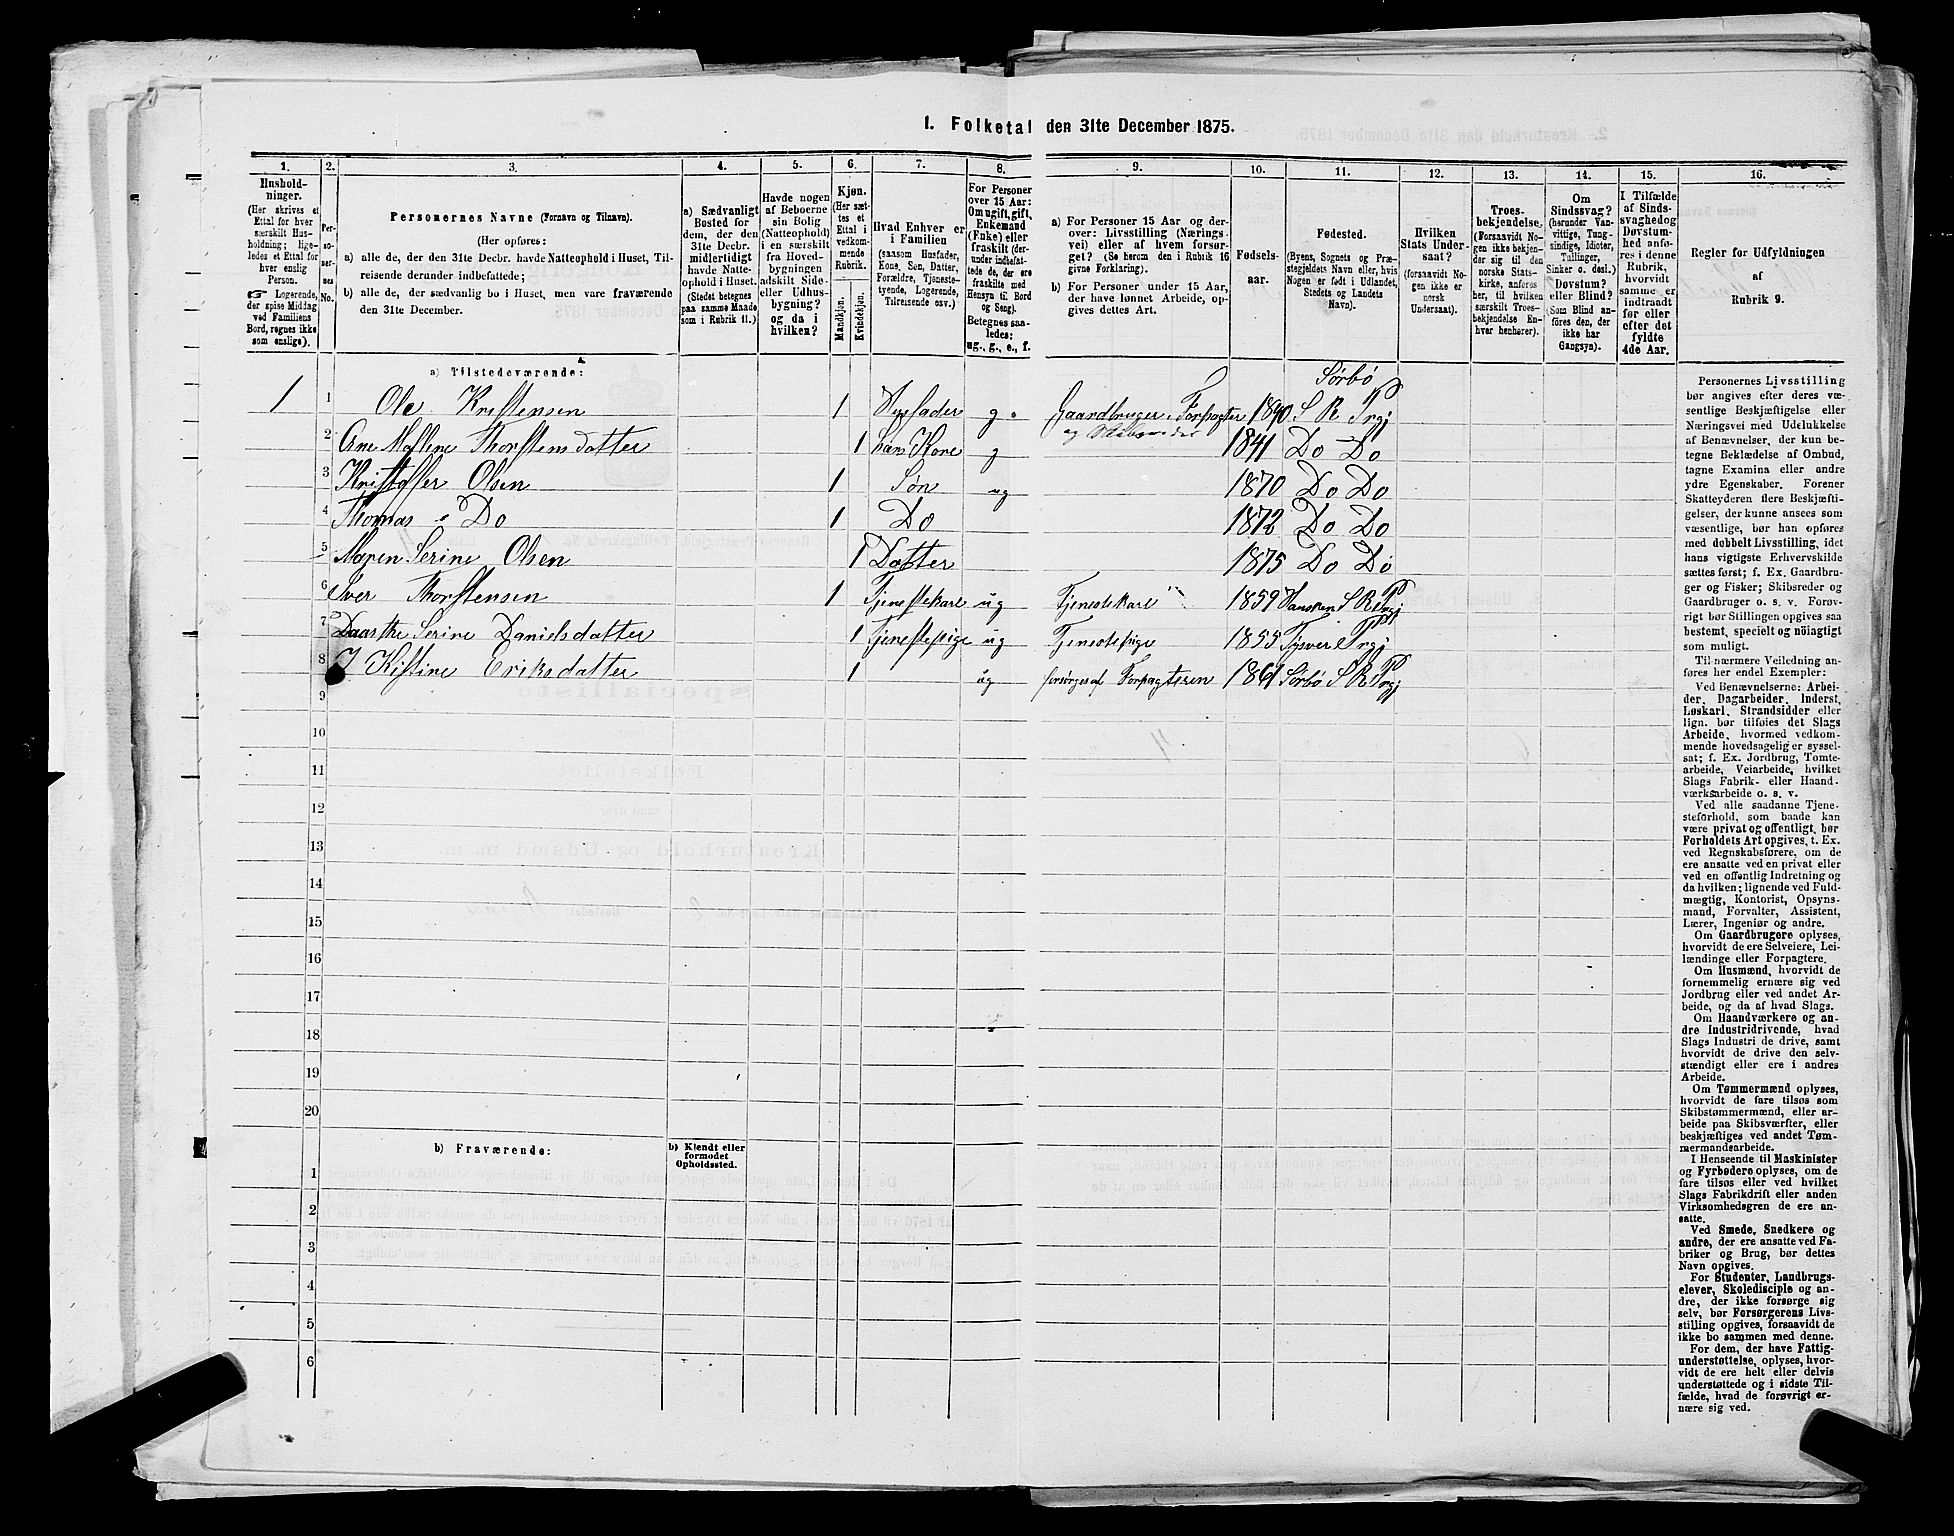 1. Folketal den 31te December 1875.
1. 2. 3. 4. 5. 6. 7. 8. 9. 10. 11. 12. 13. 14. 15. 16.
Hushold-
ninger.
(Her skrives et
Ettal for hver
særskilt Hus-
holdning; lige-
ledes et Ettal for
hver enslig
Person.
☞ Logerende,
der spise Middag
ved Familiens
Bord, regnes ikke
som enslige).
Per-
so-
ner-
nes
No.
Personernes Navne (Fornavn og Tilnavn).
(Her opføres:
a) alle de, der den 31te Decbr. havde Natteophold i Huset, Til-
reisende derunder indbefattede;
b) alle de, der sædvanlig bo i Huset, men vare fraværende
den 31te December.
a) Sædvanligt
Bosted for
dem, der den
31te Decbr.
midlertidigt
havde Natte-
ophold i Huset.
(Stedet betegnes
paa samme Maade
som i Rubrik 11.)
Havde nogen
af Beboerne
sin Bolig
(Natteophold)
i en særskilt
fra Hoved-
bygningen
adskilt Side-
eller Udhus-
bygning?
og da i
hvilken?
Kjøn.
(Her sæt-
tes et
Ettal i
vedkom-
mende
Rubrik.
Mandkjøn.
Kvindekjøn.
Hvad Enhver er
i Familien
(saasom Husfader,
Kone, Søn, Datter,
Forældre, Tjeneste-
tyende, Logerende,
Tilreisende osv.)
For Personer
over 15 Aar:
Om ugift, gift,
Enkemand
(Enke) eller
fraskilt (der-
under indbefat-
tede de, der ere
fraskilte med
Hensyn til Bord
og Seng).
Betegnes saa-
ledes;
ug., g., e., f.
a) For Personer 15 Aar og der-
over: Livsstilling (Nærings-
vei) eller af hvem forsør-
get? (Se herom den i Rubrik 16
givne Forklaring).
b) For Personer under 15 Aar,
der have lønnet Arbeide, op-
gives dettes Art.
Fødsels-
aar.
Fødested.
(Byens, Sognets og Præ-
stegjeldets Navn eller, hvis
Nogen er født i Udlandet,
Stedets og Landets
Navn).
Hvilken
Stats Under-
saat?
(forsaavidt No-
gen ikke er
norsk
Undersaat).
Troes-
bekjendelse.
(Forsaavidt No-
gen ikke bekjen-
der sig til den
norske Stats-
kirke, anføres
her, til hvilken
særskilt Troes-
bekjendelse En-
hver henhører).
Om
Sindssvag?
(herunder Van-
vittige, Tung-
sindige, Idioter,
Tullinger,
Sinker o. desl.)
Døvstum?
eller Blind?
(Som Blind an-
føres den, der
ikke har
Gangsyn).
I Tilfælde
af Sinds-
svaghed og
Døvstum-
hed anfø-
res i denne
Rubrik,
hvorvidt
samme er
indtraadt
før eller
efter det
fyldte
4de Aar.
Regler for Udfyldningen
af
Rubrik 9.
a) Tilstedeværende:
Sørbø
1 1 Ole Kristensen 1 Husfader g. Gaardbruger, Forpagter 1840 S R Prgj
og
2 Ane Mallene Thorstensdatter 1 hans Kone g 1841 Do Do
3 Kristoffer Olsen 1 Søn ug 1870 Do Do
4 Thomas Do 1 Do 1872 Do Do
5 Maren Serine Olsen 1 Datter 1875 Do Do
6 Iver Thorstensen 1 Tjenestekare ug Tjenestekare 1859 S R Prgj
7 Daarthe Serine Danielsdatter 1 Tjenestepige ug Tjenestepige 1855 Tysver Prgj
8 Kistine Eriksdatter 1 ug forsørges af Forpagteren 1861 Sørbø S R Prgj
9
10
11
12
13
14
15
16
17
18
19
20
b) Fraværende:
b) Kjendt eller
formodet
Opholdssted.
1
2
3
4
5
6
Personernes Livsstilling
bør angives efter deres væ-
sentlige Beskjæftigelse eller
Næringsvei med Udelukkelse
af Benævnelser, der kun be-
tegne Beklædelse af Ombud,
tagne Examina eller andre
ydre Egenskaber. Forener
Skatteyderen flere Beskjæfti-
gelser, der kunne ansees som
væsentlige, bør han opføres
med dobbelt Livsstilling, idet
hans vigtigste Erhvervskilde
sættes først; f. Ex. Gaardbru-
ger og Fisker; Skibsreder og
Gaardbruger o. s. v. Forøv-
rigt bør Stillingen opgives saa
bestemt, specielt og nøiagtigt
som muligt.
Til nærmere Veiledning an-
føres her endel Exempler:
Ved Benævnelserne: Arbei-
der, Dagarbeider, Inderst,
Løskarl, Strandsidder eller
lign. bør tilføies det Slags
Arbeide, hvormed vedkom-
mende hovedsagelig er syssel-
sat; f. Ex. Jordbrug, Tomte-
arbeide, Veiarbeide, hvilket
Slags Fabrik- eller Haand-
værksarbeide o. s. v.
Ved alle saadanne Tjene-
steforhold, som baade kan
være privat og offentligt, bør
Forholdets Art opgives, t. Ex.
ved Regnskabsførere, om de
ere ansatte ved en privat eller
ved en offentlig Indretning og
da hvilken; lignende ved Fuld-
mægtig, Kontorist, Opsyns-
mand, Forvalter, Assistent,
Lærer, Ingeniør og andre.
Om Gaardbrugere oplyses,
hvorvidt de ere Selveiere, Lei-
lændinge eller Forpagtere.
Om Husmænd, hvorvidt de
fornemmelig ernære sig ved
Jordbrug eller ved andet Ar-
beide, og da af hvad Slags.
Om Haandværkere og an-
dre Industridrivende, hvad
Slags Industri de drive, samt
hvorvidt de drive den selv-
stændigt eller ere i andres
Arbeide.
Om Tømmermænd oplyses,
hvorvidt de fare tilsøs som
Skibstømmermænd, eller ar-
beide paa Skibsværfter, eller
beskjæftiges ved andet Tøm-
mermandsarbeide.
I Henseende til Maskinister
og Fyrbødere oplyses, om de
fare tilsøs eller ved hvilket
Slags Fabrikdrift eller anden
Virksomhedsgren de ere an-
satte.
Ved Smede, Snedkere og
andre, der ere ansatte ved Fa-
briker og Brug, bør dettes
Navn opgives.
For Studenter, Landbrugs-
elever, Skoledisciple og an-
dre, der ikke forsørge sig
selv, bør Forsørgerens Livs-
stilling opgives, forsaavidt de
ikke bo sammen med denne.
For dem, der have Fattig-
understøttelse, oplyses, hvor-
vidt de ere helt eller delvis
understøttede og i sidste Til-
fælde, hvad de forøvrigt er-
nære sig ved.